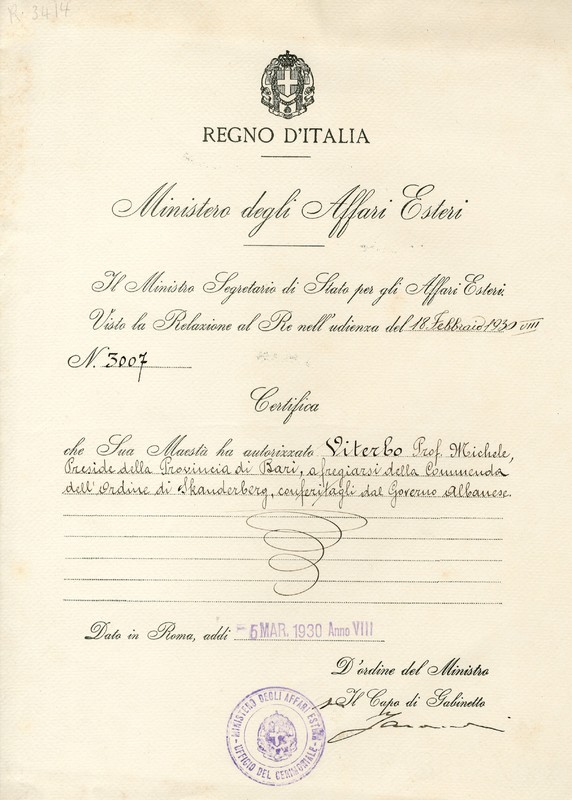 R. 3414
REGNO D'ITALIA
Ministero degli Affari Esteri
Il Ministro Segretario di Stato per gli Affari Esteri:
Visto la Relazione al Re nell'udienza del 18 Febbraio 1930 VIII
N. 3007
Certifica
che Sua Maestà ha autorizzato Viterbo Prof. Michele,
Preside della Provincia di Bari, a fregiarsi della Commenda
dell'Ordine di Skanderberg, conferitagli dal Governo Albanese.
Dato in Roma, addì - 5 MAR. 1930 Anno VIII
D'ordine del Ministro
Il Capo di Gabinetto
MINISTERO DEGLI AFFARI ESTERI
UFFICIO DEL CERIMONIALE